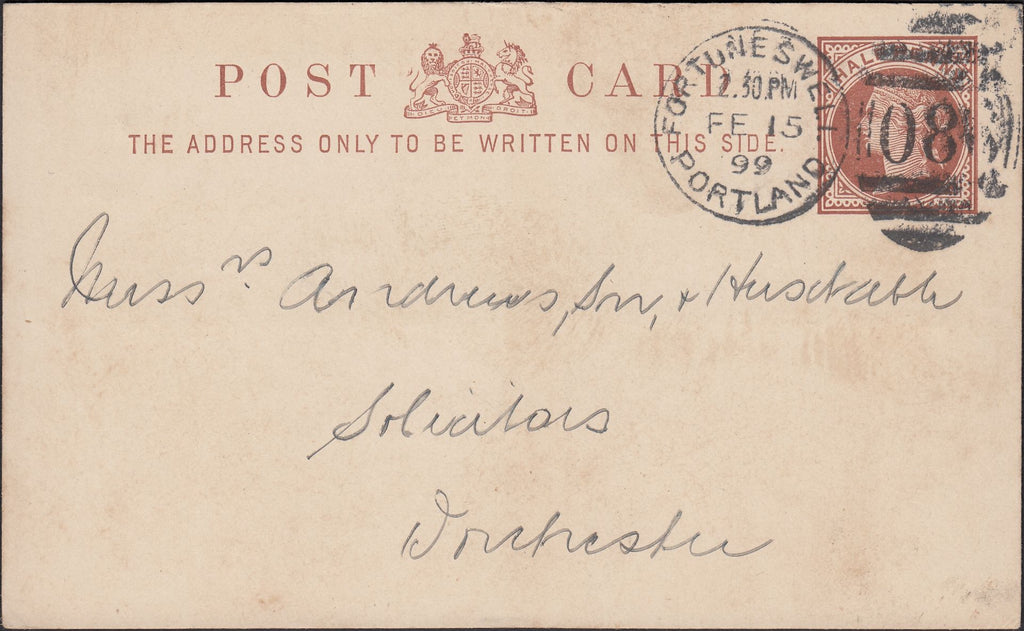 POST CARD
THE ADDRESS ONLY TO BE WRITTEN ON THIS SIDE.
FORTUNESWELL
2.30.PM
FE 15
99
PORTLAND
HALF
08
Messrs Andrews, Son, & Huxtable
Solicitors
Dorchester